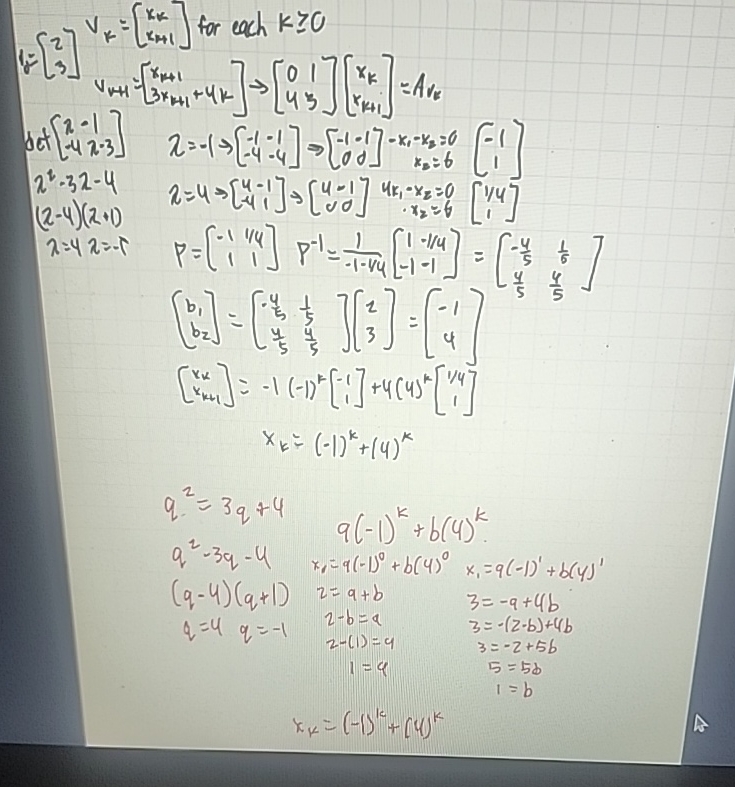 V_K = [x_K x_K+1] for each K≥0
V_0 = [2 3]
V_K+1 = [x_K+1 3x_K+1 + 4K] → [0 1 4 3] [x_K x_K+1] = AV_K
det [λ -1 -4 λ-3]
λ² - 3λ - 4
(λ-4)(λ+1)
λ=4 λ=-1
λ=-1 → [-1 -1 -4 -4] → [-1 -1 0 0] -x₁-x₂=0 x₂=t [-1 1]
λ=4 → [4 -1 -4 1] → [4 -1 0 0] 4x₁-x₂=0 x₂=t [1/4 1]
P = [-1 1/4 1 1] P⁻¹ = 1/(-1-1/4) [1 -1/4 -1 -1] = [-4/5 1/5 4/5 4/5]
[b₁ b₂] = [-4/5 1/5 4/5 4/5] [2 3] = [-1 4]
[x_K x_K+1] = -1(-1)^K [-1 1] + 4(4)^K [1/4 1]
x_K = (-1)^K + (4)^K
q² = 3q + 4
q² - 3q - 4
(q-4)(q+1)
q=4 q=-1
a(-1)^K + b(4)^K
x₀ = a(-1)⁰ + b(4)⁰
2 = a+b
2-b = a
2-(1) = a
1 = a
x₁ = a(-1)¹ + b(4)¹
3 = -a + 4b
3 = -(2-b)+4b
3 = -2+5b
5 = 5b
1 = b
x_K = (-1)^K + (4)^K